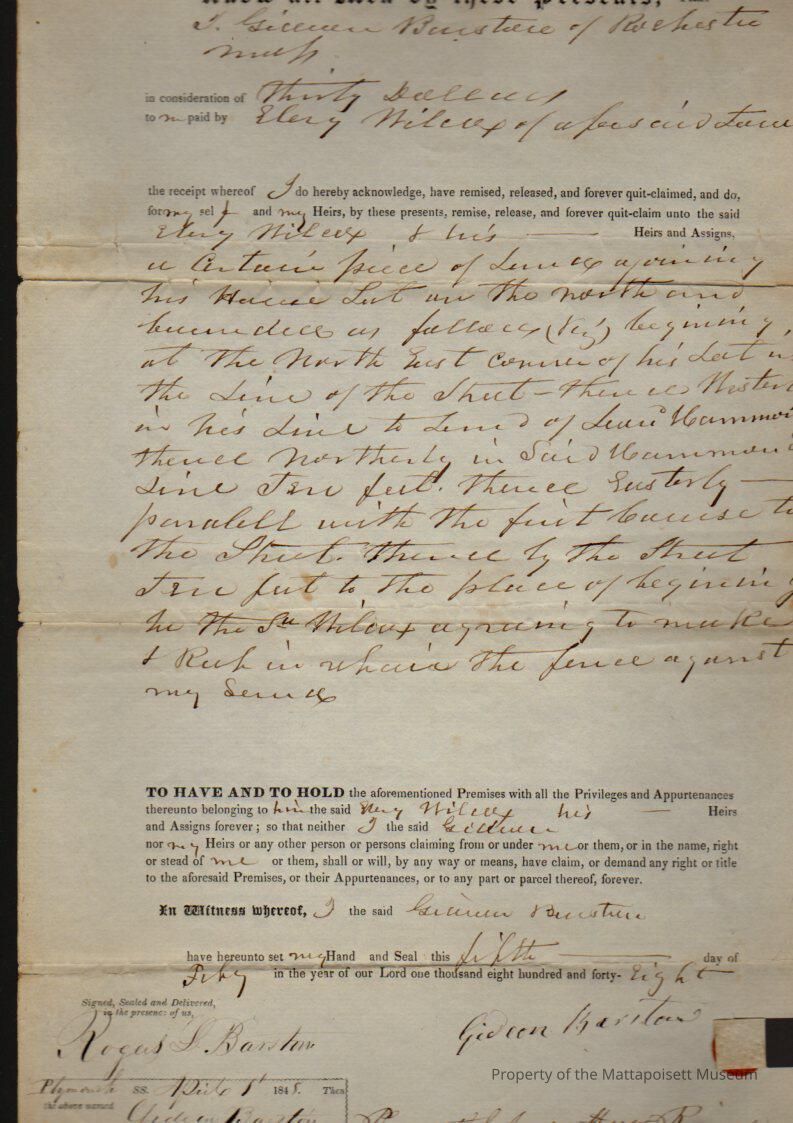 Know all Men by these Presents,
I, Gideon Barstow of Rochester
Mass
in consideration of Thirty Dollars
to me paid by Elery Wilcox of aforesaid Town
the receipt whereof I do hereby acknowledge, have remised, released, and forever quit-claimed, and do,
for my self and my Heirs, by these presents, remise, release, and forever quit-claim unto the said
Elery Wilcox & his Heirs and Assigns,
a Certain piece of Land ajoining
his House Lot on the North and
bounded as follows (viz) begining
at the North East corner of his Lot in
the Line of the Street - thence Westerly
in his Line to Land of Hammond
thence Northerly in Said Hammond
Line Ten feet. thence Easterly
paralell with the first Course to
the Street. thence by the Street
Ten feet to the place of begining
he the Sd Wilcox agreeing to make
& Keep in repair the fence against
my Land
TO HAVE AND TO HOLD the aforementioned Premises with all the Privileges and Appurtenances
thereunto belonging to him the said Elery Wilcox his Heirs
and Assigns forever; so that neither I the said Gideon
nor my Heirs or any other person or persons claiming from or under me or them, or in the name, right
or stead of me or them, shall or will, by any way or means, have claim, or demand any right or title
to the aforesaid Premises, or their Appurtenances, or to any part or parcel thereof, forever.
In Witness whereof, I the said Gideon Barstow
have hereunto set my Hand and Seal this fifth day of
Feby in the year of our Lord one thousand eight hundred and forty-Eight
Signed, Sealed and Delivered,
in the presence of us,
Gideon Barstow
Rogers L Barstow
Property of the Mattapoisett Museum
Plymouth SS. April 1848. Then
the above named
Gideon Barstow